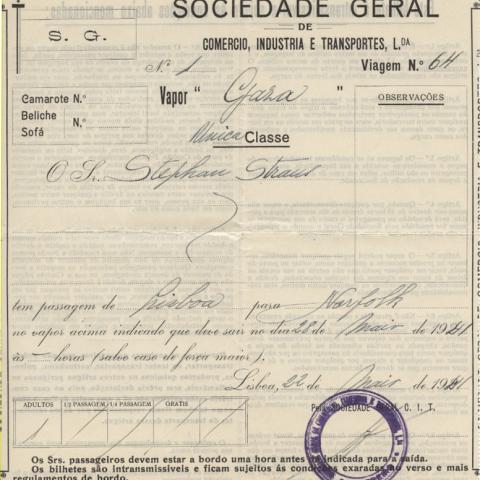 SOCIEDADE GERAL
DE
COMERCIO, INDUSTRIA E TRANSPORTES, L.DA
S. G.
N.º 1
Viagem N.º 64
Camarote N.º
Beliche
Sofá
N.º
Vapor " Gaza "
Unica Classe
OBSERVAÇÕES
O Sr. Stephan Straus
tem passagem de Lisboa para Norfolk
no vapor acima indicado que deve sair no dia 28 de Maio de 1941
às — horas (salvo caso de força maior).
Lisboa, 22 de Maio de 1941
Pela SOCIEDADE GERAL C. I. T.
ADULTOS 1/2 PASSAGEM 1/4 PASSAGEM GRATIS
1
Os Srs. passageiros devem estar a bordo uma hora antes da indicada para a saída.
Os bilhetes são intransmissiveis e ficam sujeitos ás condições exaradas no verso e mais
regulamentos de bordo.